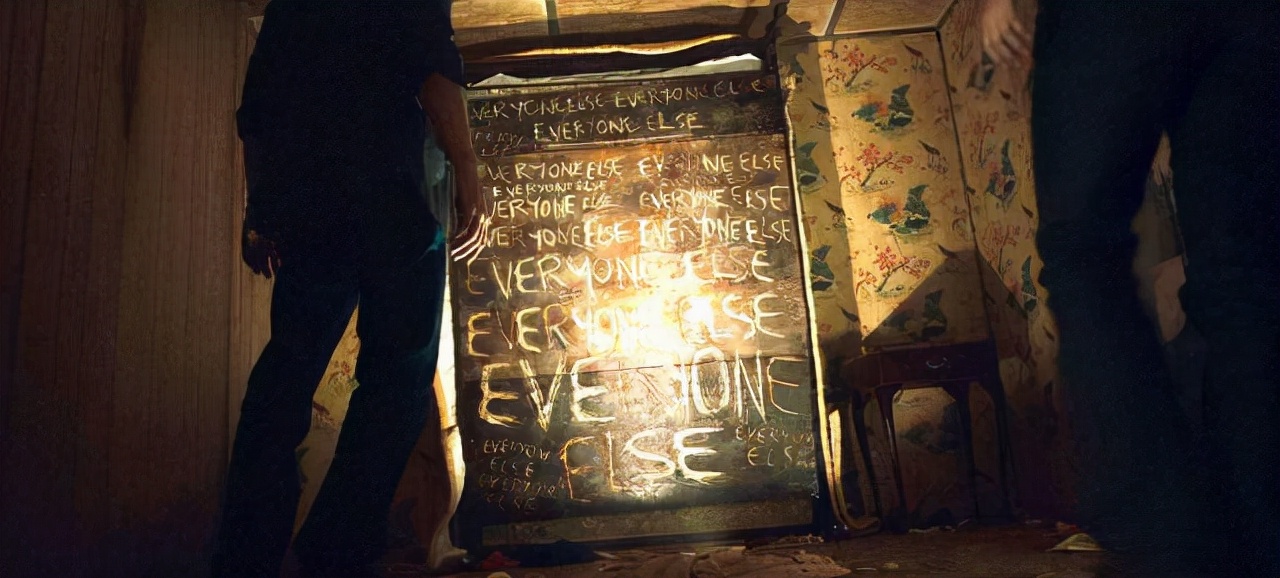 EVERYONE ELSE EVERYONE ELSE
EVERYONE ELSE
EVERYONE ELSE EVERYONE ELSE
EVERYONE ELSE
EVERYONE ELSE EVERYONE ELSE
EVERYONE ELSE EVERYONE ELSE
EVERYONE ELSE
EVERYONE ELSE
EVERYONE
ELSE
EVERYONE
ELSE
EVERYONE
ELSE
EVERYONE
ELSE